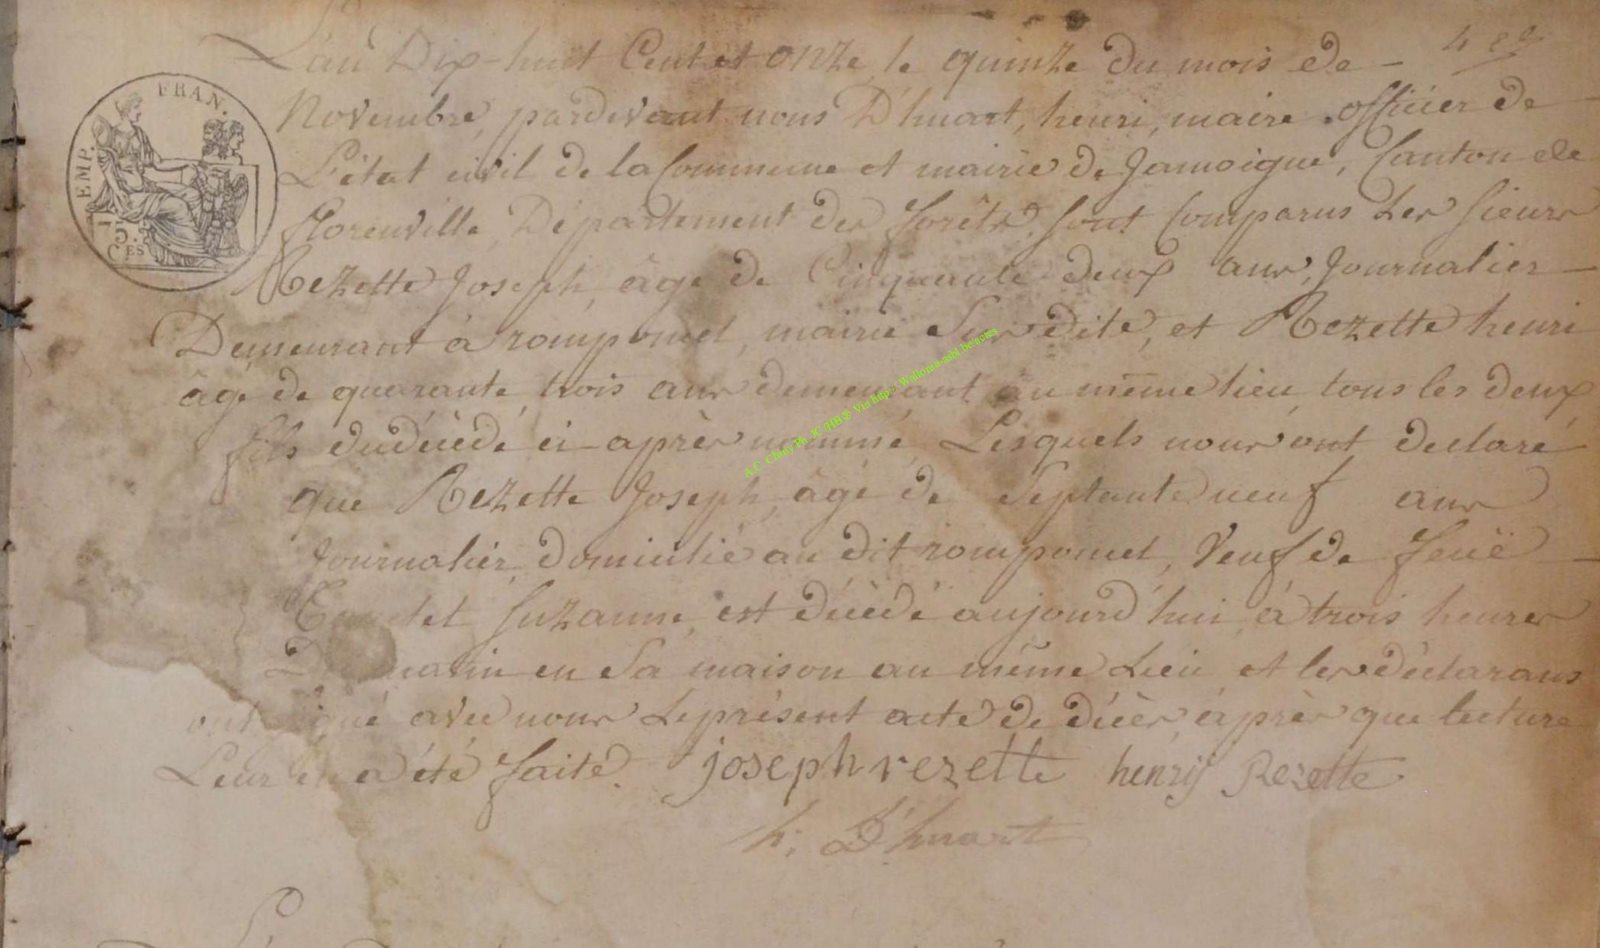 L'an Dix-huit Cent et onze, le quinze du mois de -
Novembre, pardevant nous D'huart, henri, maire officier de
L'état civil de la Commune et mairie de Jamoigne, Canton de
florenville, Département des forêts, sont Comparus Les sieurs
Rezette Joseph, âgé de Cinquante deux ans, Journalier -
Demeurant à rompomel, mairie Susdite, et Rezette henri
âgé de quarante trois ans demeurant au même lieu, tous les deux
fils du décédé ci-après nommé, Lesquels nous ont declaré
que Rezette Joseph, âgé de Septante neuf ans
Journalier, domicilié au dit rompomel, Veuf de feuë -
Suzanne, est décédé aujourd'hui, à trois heures
matin en Sa maison au même Lieu et les déclarans
ont avec nous Le présent acte de décès, après que lecture
Leur en a été faite. joseph rezette henrij Rezette
h: D'huart
EMP. FRAN.
15 CES
A.C. Chiny Ph. JC /HB® Via http://Wallonia-asbl.be/actes